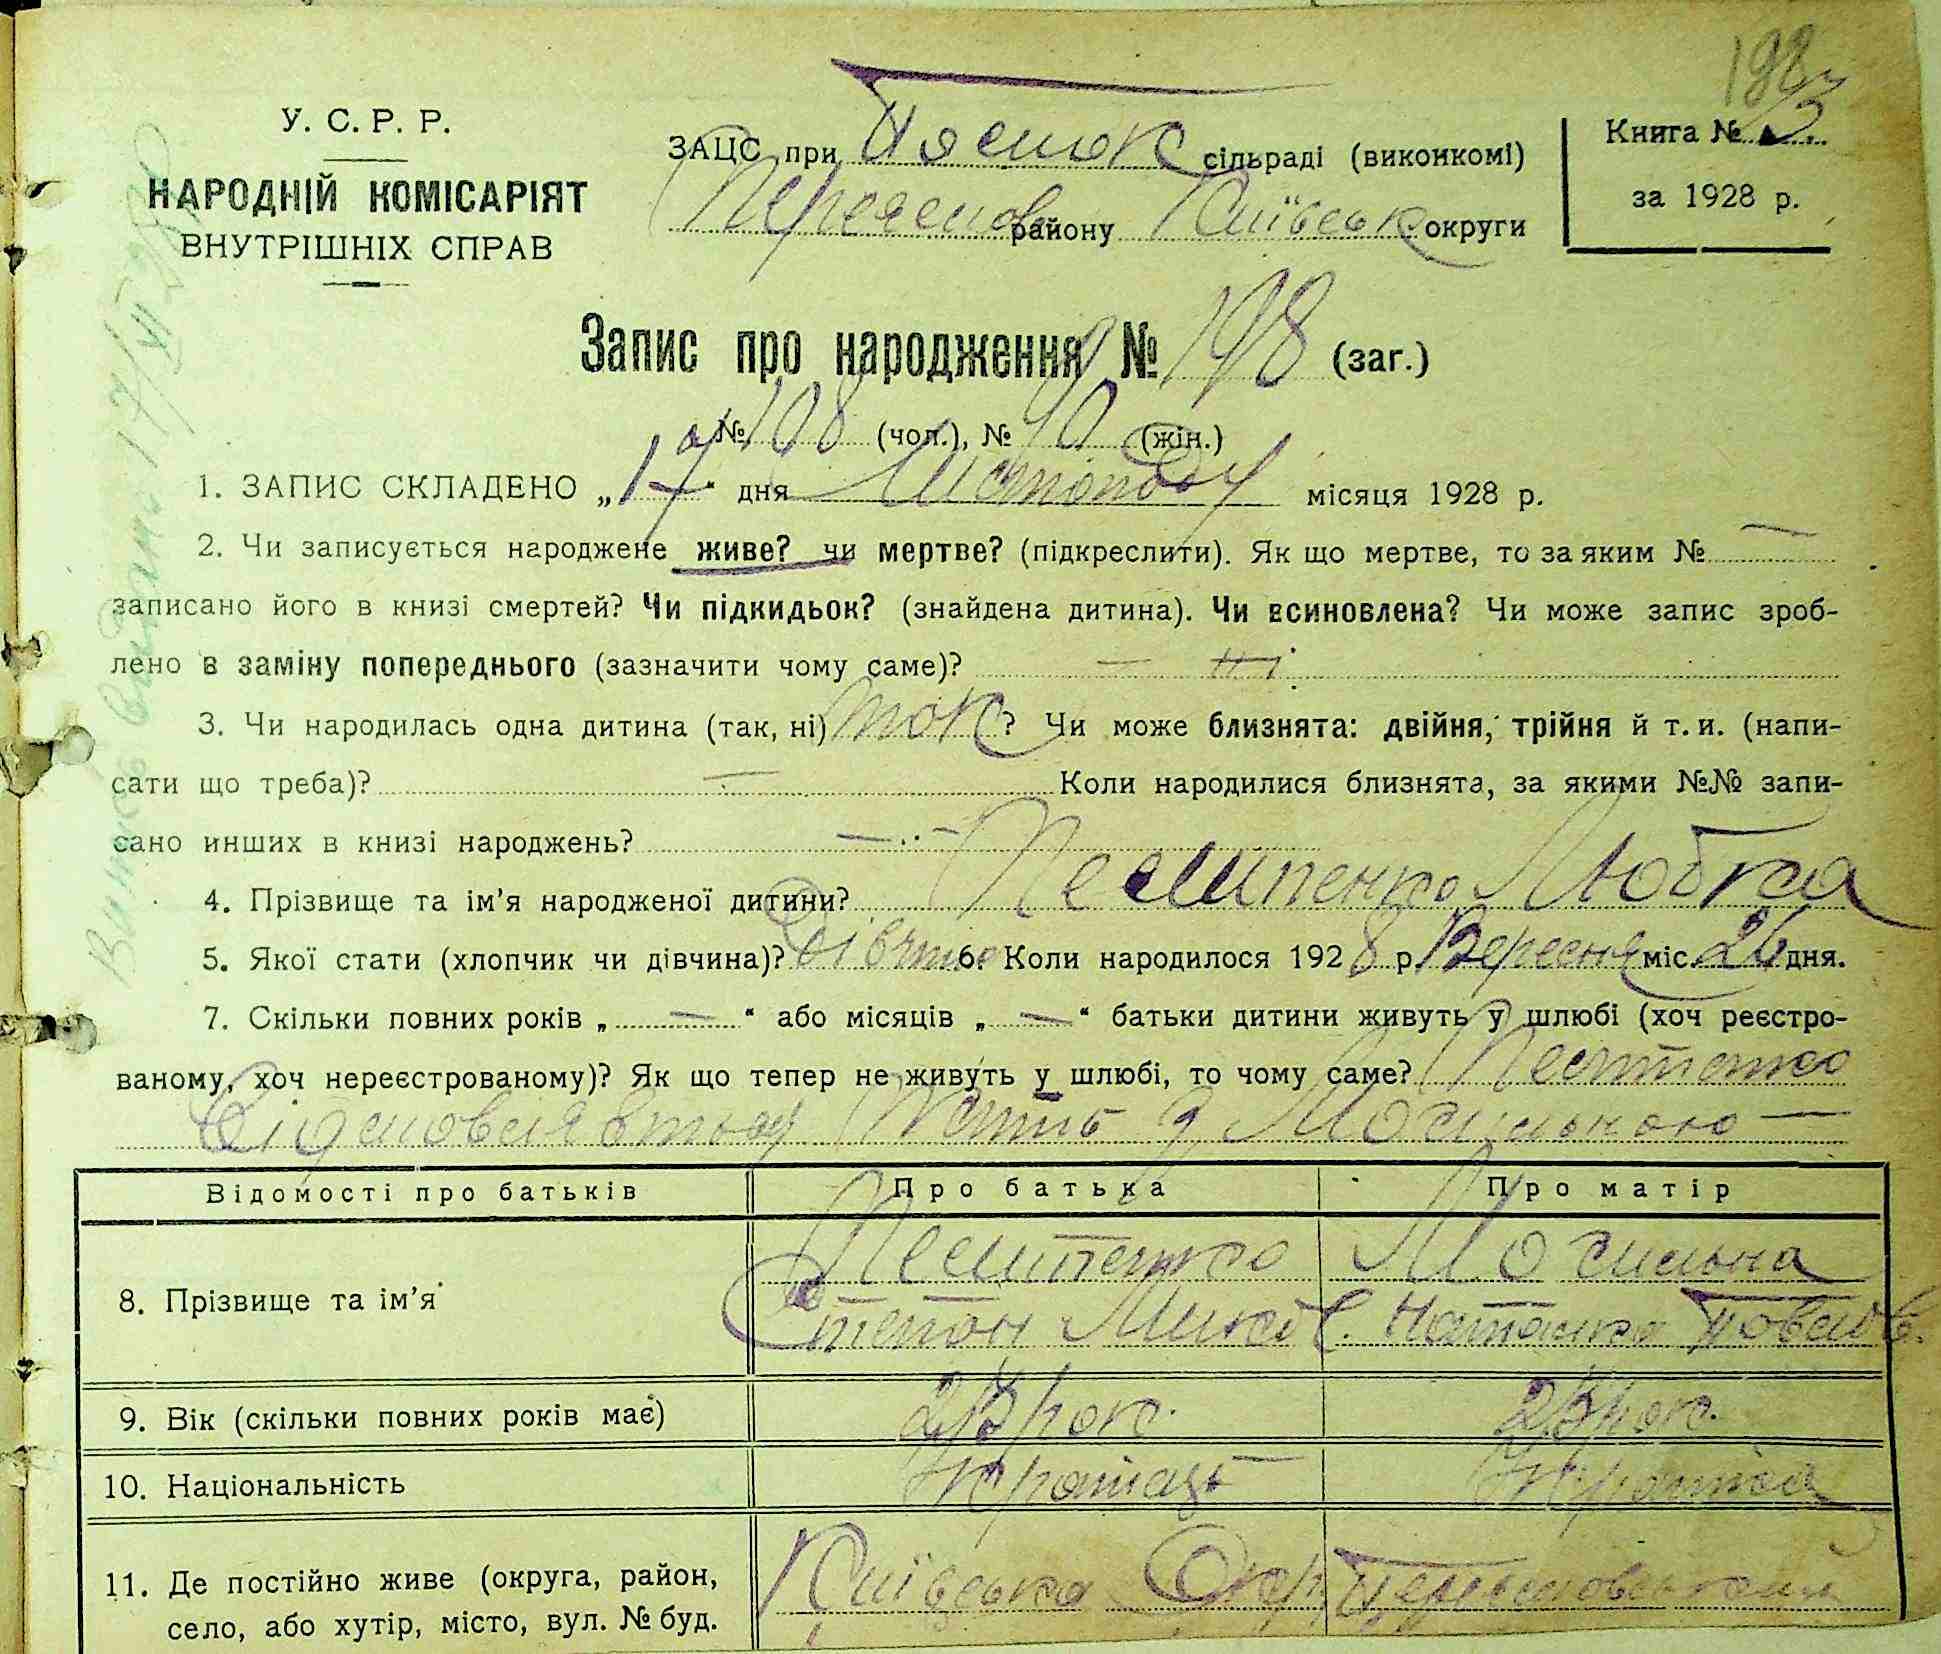 198
У. С. Р. Р.
НАРОДНІЙ КОМІСАРІЯТ
ВНУТРІШНІХ СПРАВ
ЗАЦС при сільраді (виконкомі)
Переяслов району Київськ округи
Книга № 3.
за 1928 р.
Запис про народження № 198 (заг.)
№ 108 (чол.), № 90 (жін.)
1. ЗАПИС СКЛАДЕНО „17“ дня Листопаду місяця 1928 р.
2. Чи записується народжене живе? чи мертве? (підкреслити). Як що мертве, то за яким № —
записано його в книзі смертей? Чи підкидьок? (знайдена дитина). Чи всиновлена? Чи може запис зроб-
лено в заміну попереднього (зазначити чому саме)? — ні
3. Чи народилась одна дитина (так, ні) так? Чи може близнята: двійня, трійня й т. и. (напи-
сати що треба)? — Коли народилися близнята, за якими №№ запи-
сано инших в книзі народжень? —
4. Прізвище та ім'я народженої дитини? Любка
5. Якої стати (хлопчик чи дівчина)? Дівчина 6. Коли народилося 1928 р Вересня міс. 26 дня.
7. Скільки повних років „ — “ або місяців „ — “ батьки дитини живуть у шлюбі (хоч реєстро-
ваному, хоч нереєстрованому)? Як що тепер не живуть у шлюбі, то чому саме?
жить з Могильною —
Відомості про батьків Про батька Про матір
8. Прізвище та ім'я Могильна
Степан Микол. Наталка Павлов.
9. Вік (скільки повних років має) рок. рок.
10. Національність Українец Українка
11. Де постійно живе (округа, район, Київська Окр. Переяславськ
село, або хутір, місто, вул. № буд.